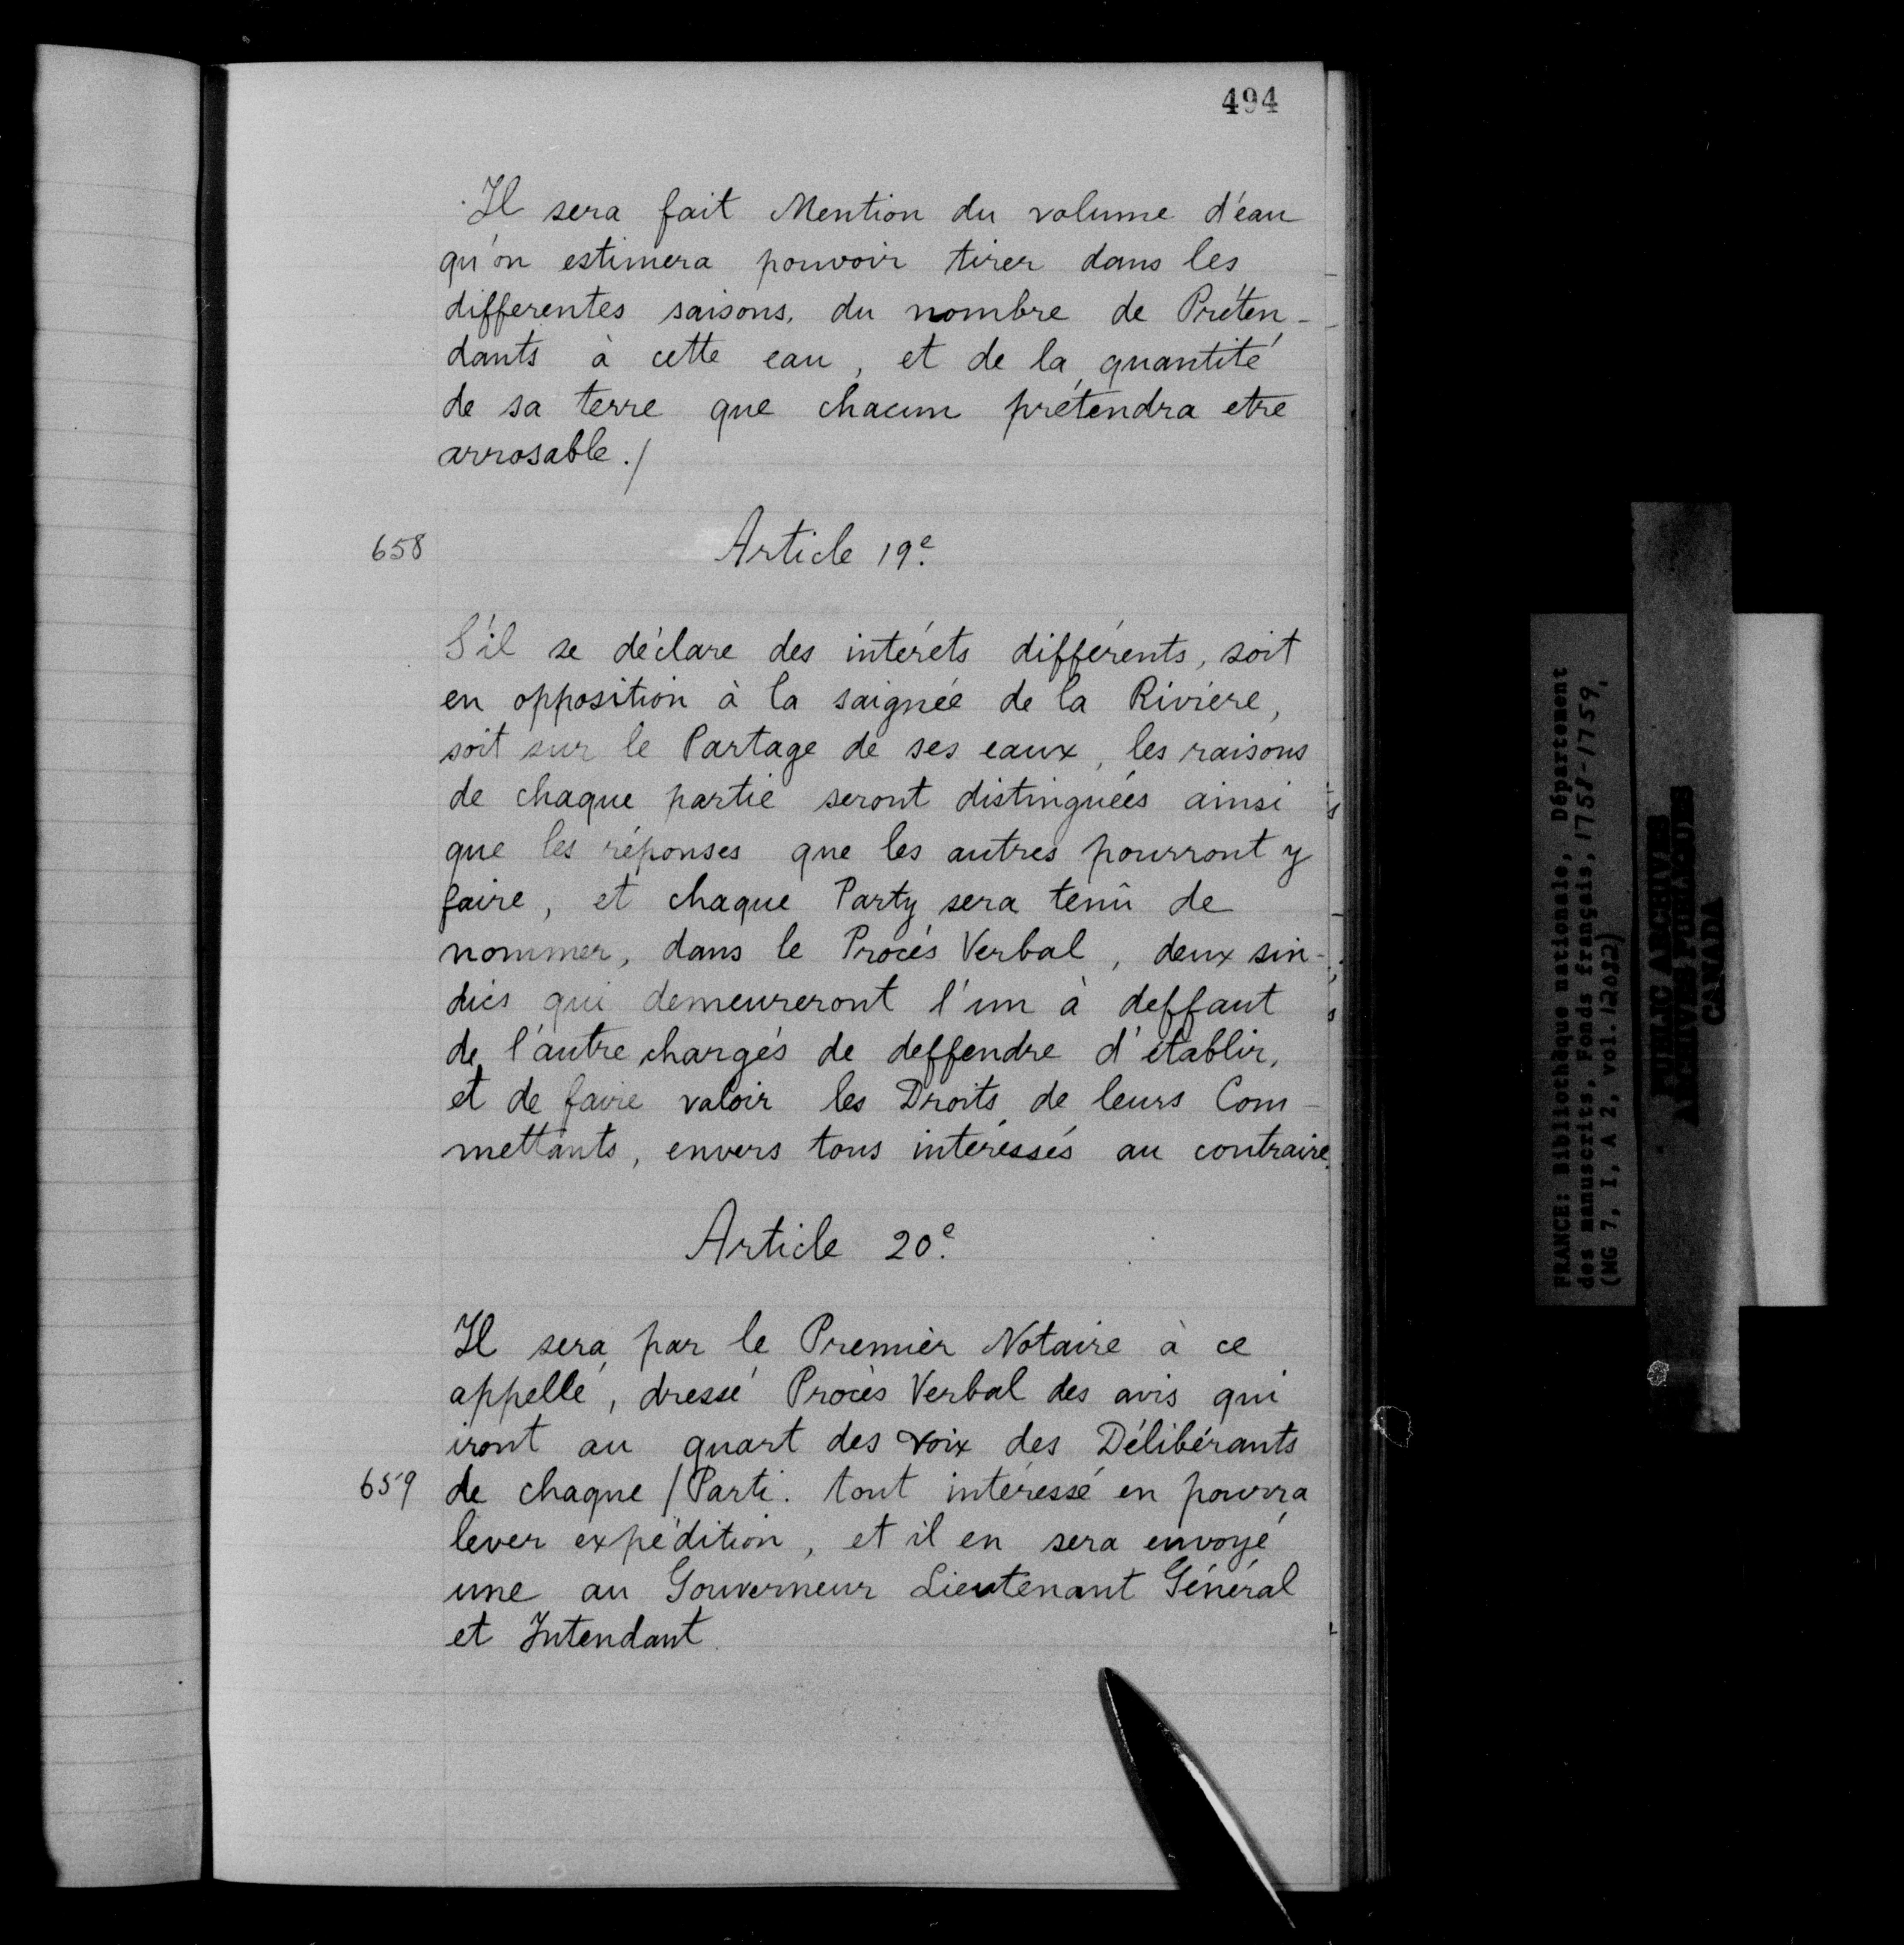 494
Il sera fait Mention du volume d'eau
qu'on estimera pouvoir tirer dans les
differentes saisons, du nombre de Préten-
dants à cette eau, et de la quantité
de sa terre que chacun prétendra etre
arrosable./
658 Article 19e.
S'il se déclare des intérêts différents, soit
en opposition à la saignée de la Rivière,
soit sur le Partage de ses eaux, les raisons
de chaque partie seront distinguées ainsi
que les réponses que les autres pourront y
faire, et chaque Party sera tenû de
nommer, dans le Procès Verbal, deux sin-
dics qui demeureront l'un à deffaut
de l'autre chargés de deffendre d'établir,
et de faire valoir les Droits de leurs Com-
mettants, envers tous intéressés au contraire.
Article 20e.
Il sera par le Premier Notaire à ce
appellé, dressé Procès Verbal des avis qui
iront au quart des voix des Délibérants
659 de chaque / Parti. tout intéressé en pourra
lever expédition, et il en sera envoyé
une au Gouverneur Lieutenant Général
et Intendant.
FRANCE: Bibliothèque nationale, Département
des manuscrits, Fonds français, 1758-1759,
(MG 7, I, A 2, vol. 12082)
PUBLIC ARCHIVES
ARCHIVES PUBLIQUES
CANADA